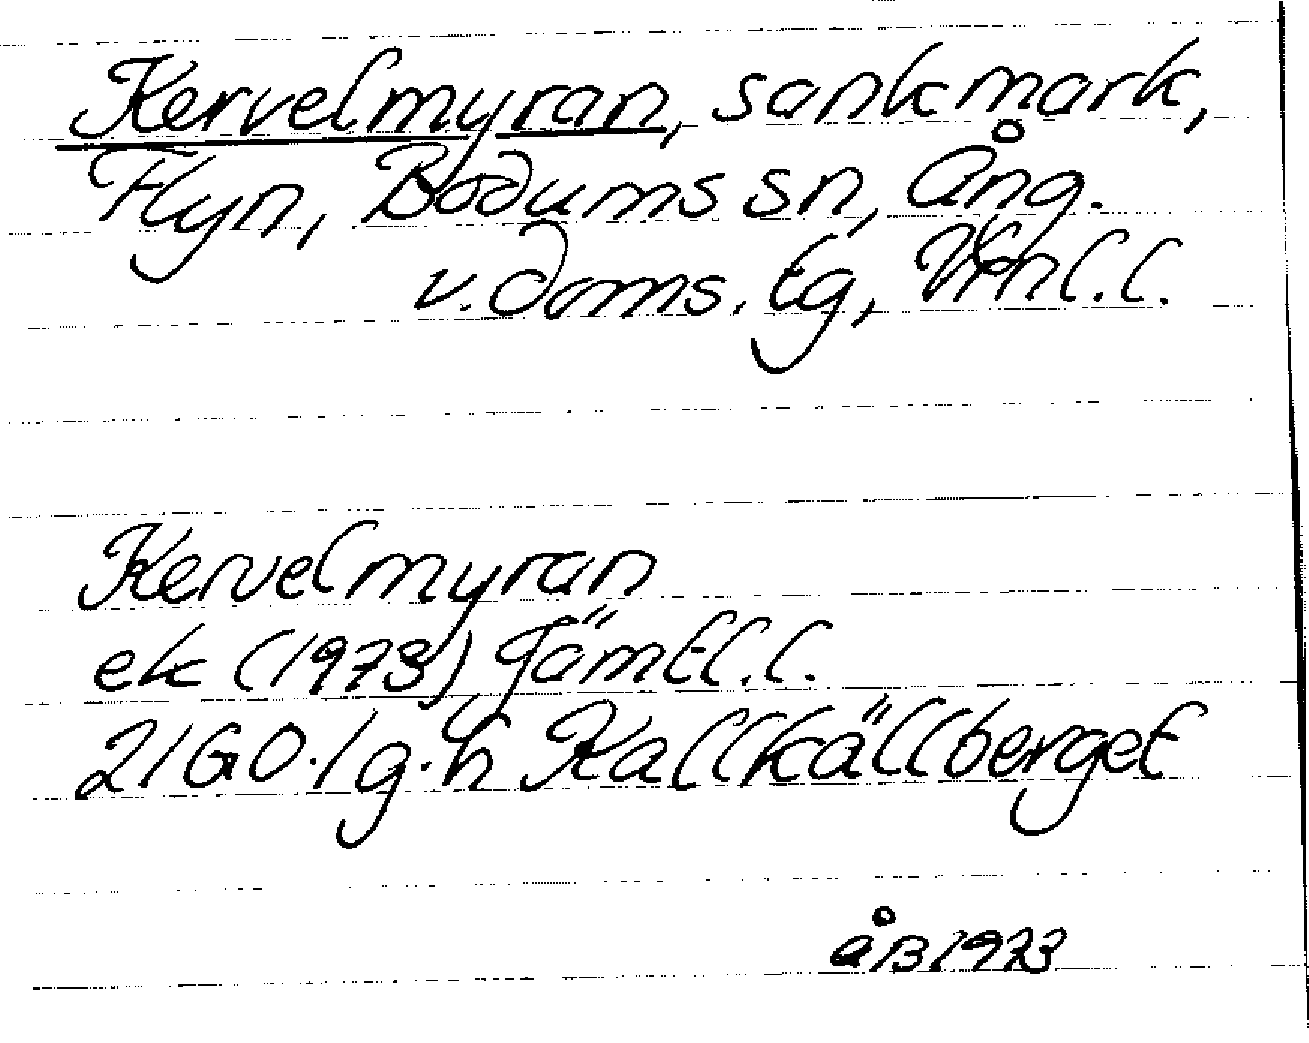 Kervelmyran, sankmark,
Flyn, Bodums sn, Ång.
v. doms. tg, Vrnl.l.
Kervelmyran
ek (1973) Jämtl.l.
21G0.1g.h Kallkällberget
åB 1973